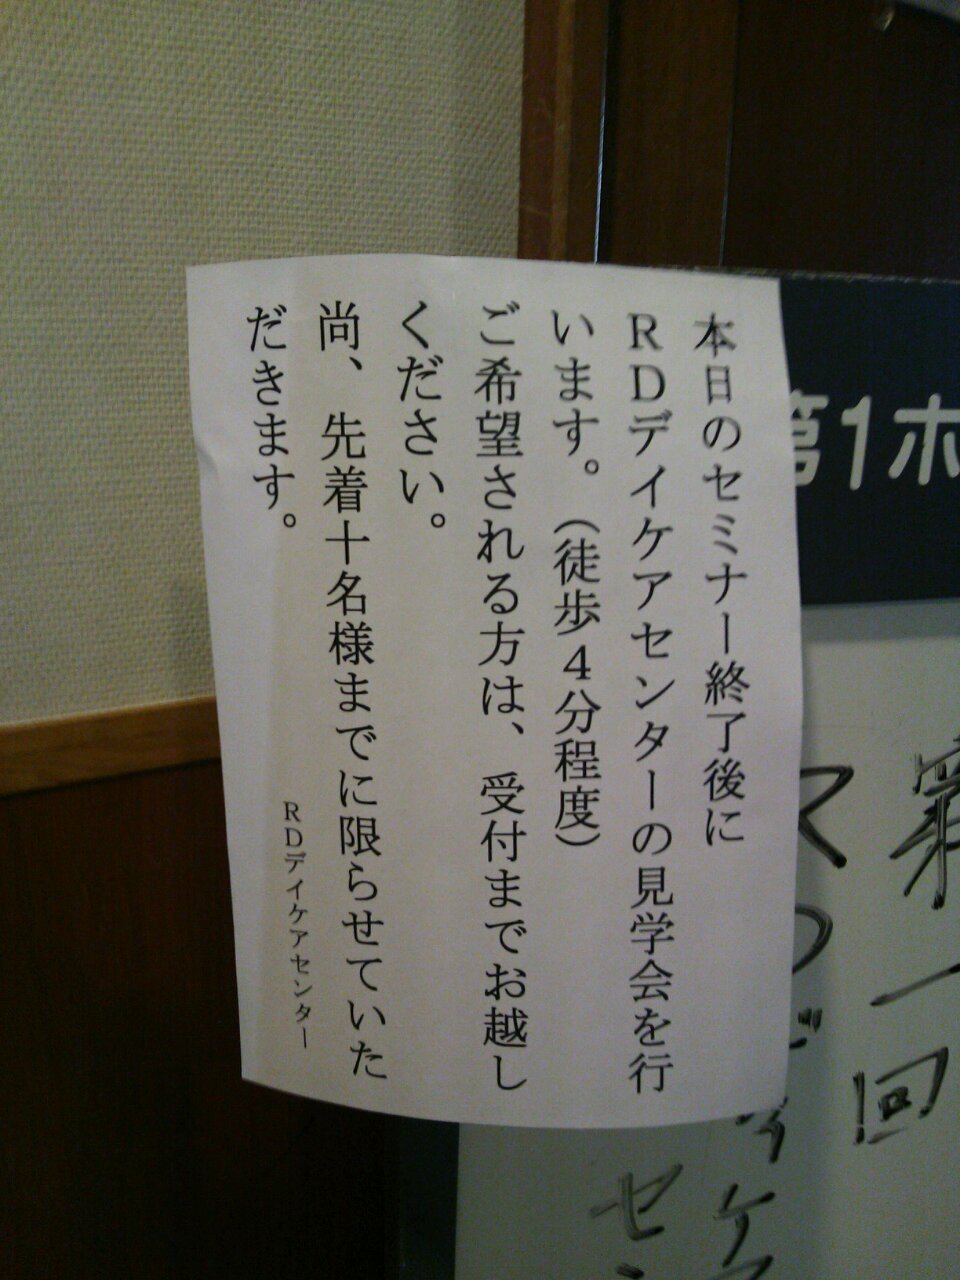 本日のセミナー終了後に
RDデイケアセンターの見学会を行
います。（徒歩4分程度）
ご希望される方は、受付までお越し
ください。
尚、先着十名様までに限らせていた
だきます。
RDデイケアセンター
第1ホ
第一回
ケア
セン